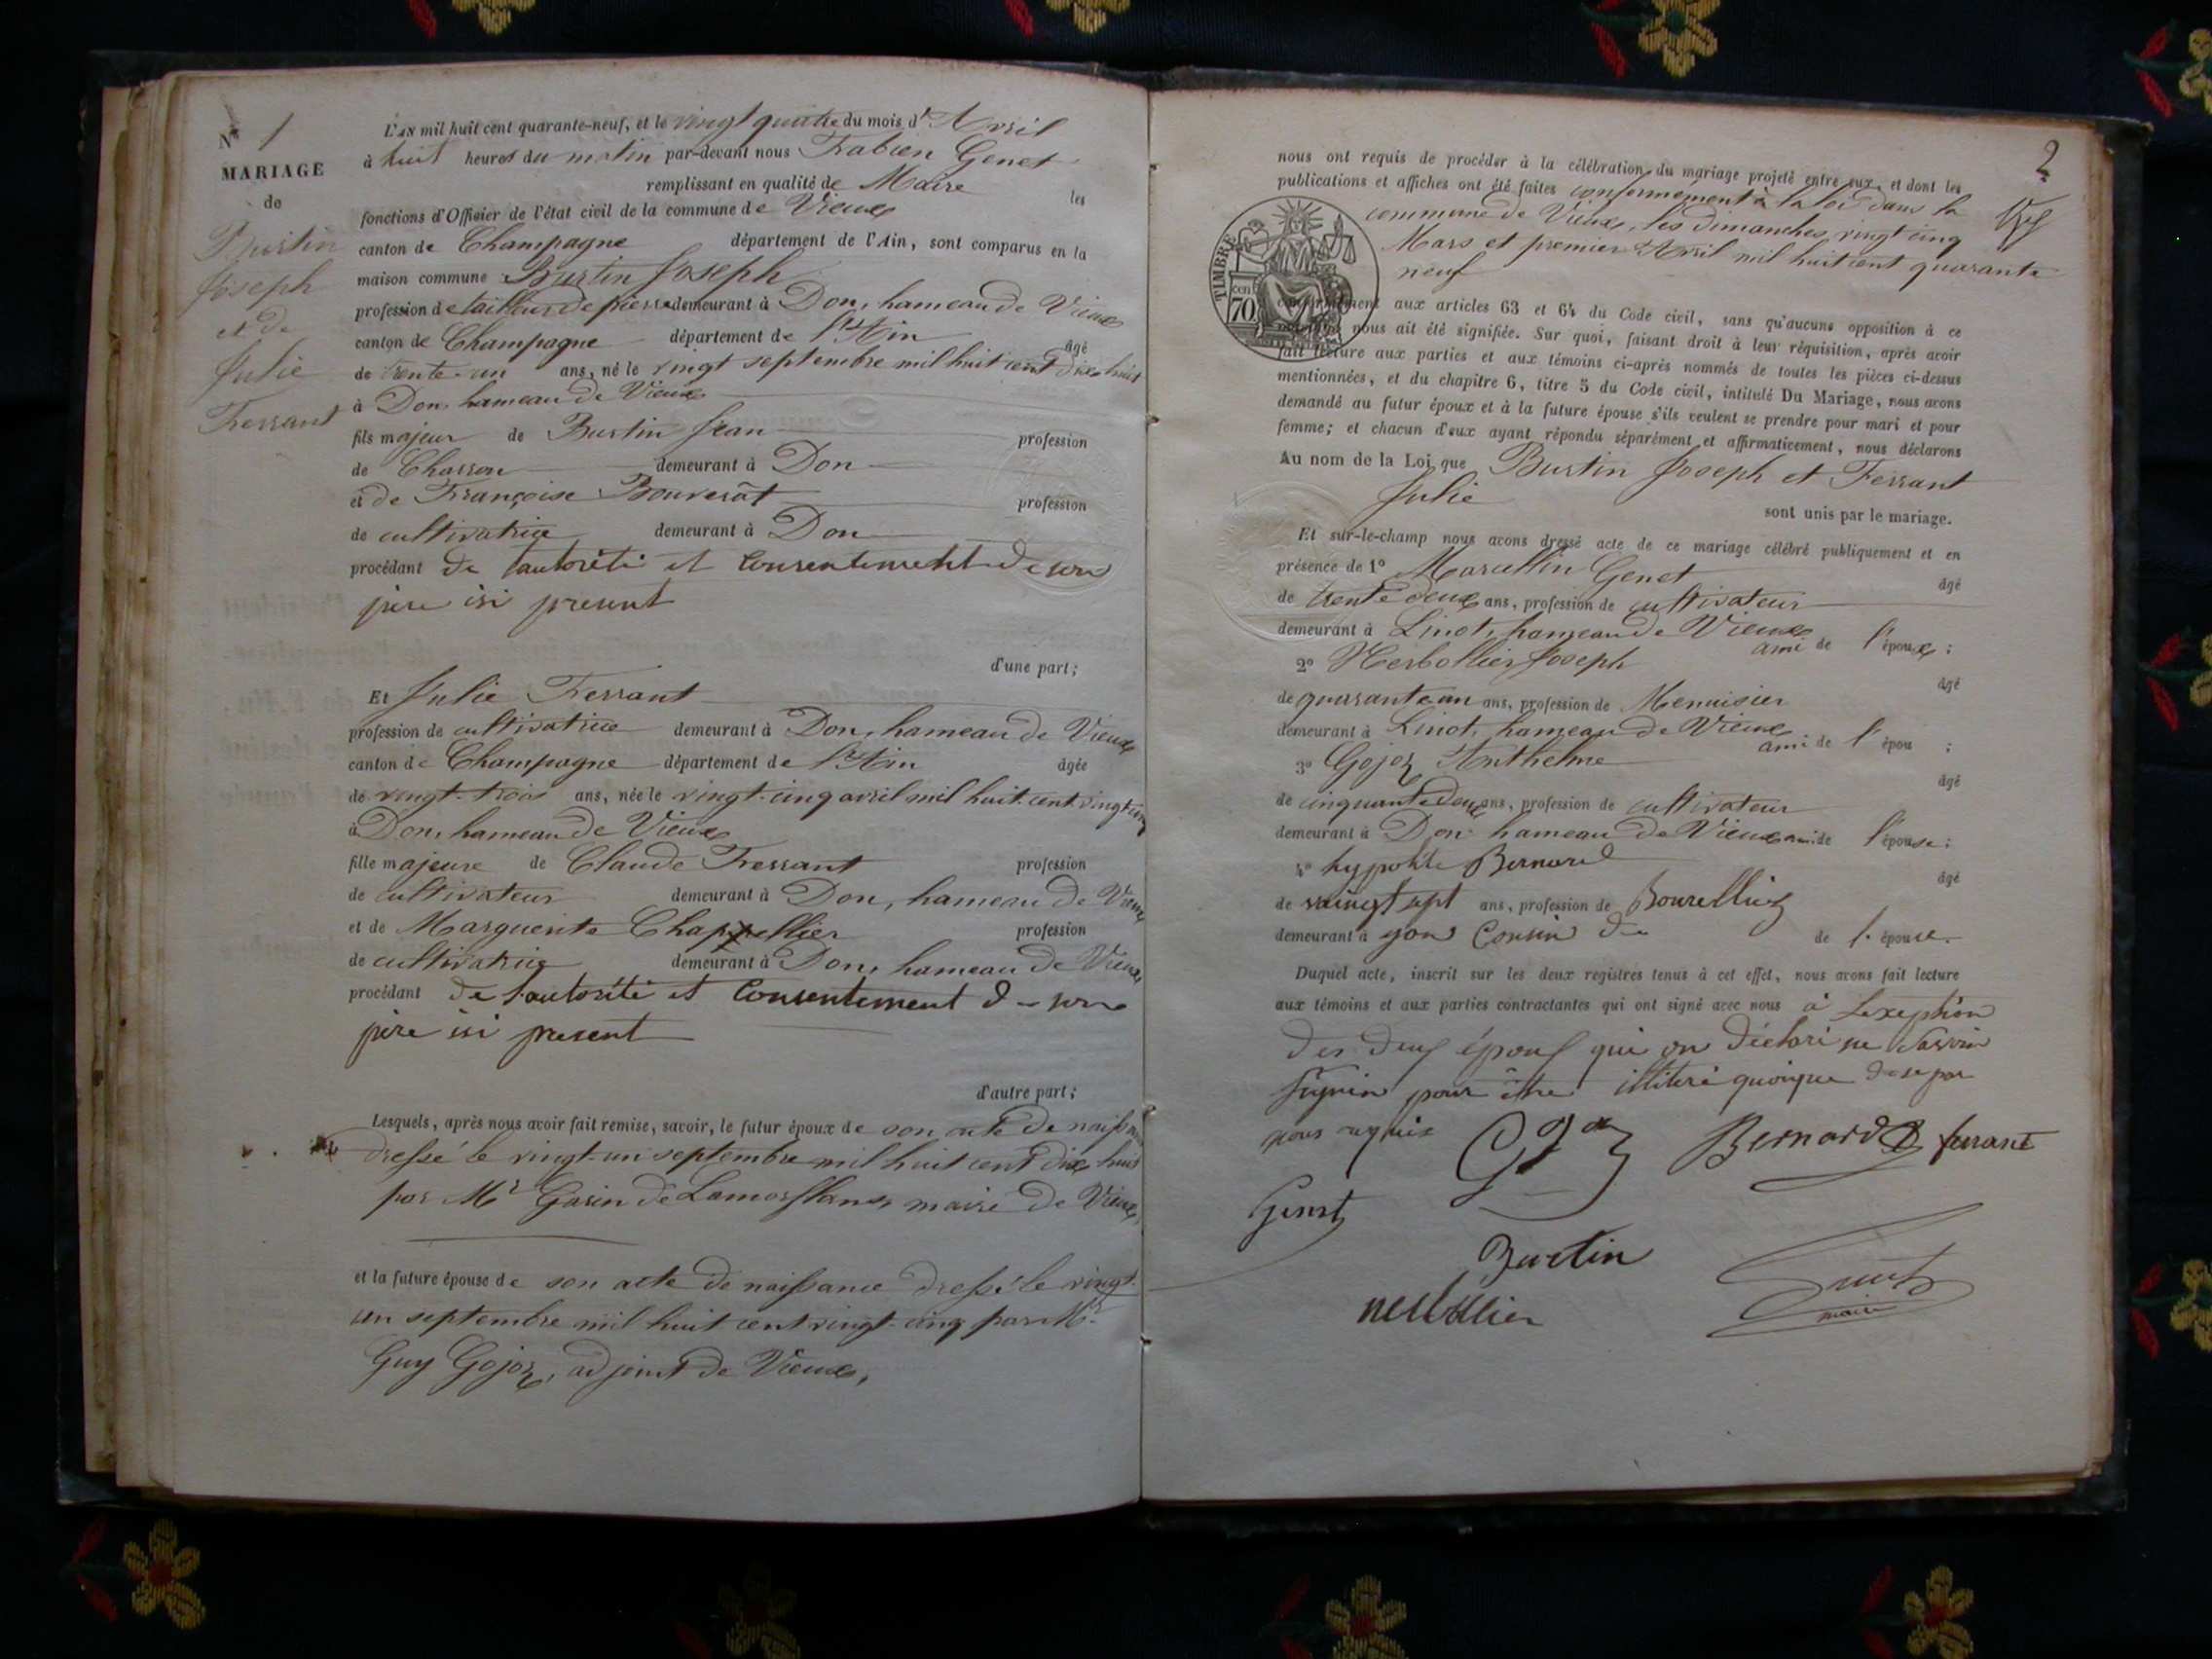 N° 1
MARIAGE
de
Burtin
Joseph
et de
Julie
Ferrant
L'AN mil huit cent quarante-neuf, et le vingt quatre du mois d' Avril
à huit heures du matin par-devant nous Fabien Genet
remplissant en qualité de Maire les
fonctions d'Officier de l'état civil de la commune de Vieux
canton de Champagne département de l'Ain, sont comparus en la
maison commune Burtin Joseph
profession de tailleur de pierre demeurant à Don, hameau de Vieux
canton de Champagne département de l'Ain âgé
de trente-un ans, né le vingt septembre mil huit cent dix-huit
à Don, hameau de Vieux
fils majeur de Burtin Jean profession
de Charron demeurant à Don
et de Françoise Bouverat profession
de cultivatrice demeurant à Don
procédant de l'autorité et consentement de son
père isi present
d'une part;
Et Julie Ferrant
profession de cultivatrice demeurant à Don, hameau de Vieux
canton de Champagne département de l'Ain âgée
de vingt-trois ans, née le vingt-cinq avril mil huit cent vingt-cinq
à Don, hameau de Vieux
fille majeure de Claude Ferrant profession
de cultivateur demeurant à Don, hameau de Vieux
et de Marguerite Chappellier profession
de cultivatrice demeurant à Don, hameau de Vieux
procédant de l'autorité et consentement de son
père isi present
d'autre part;
Lesquels, après nous avoir fait remise, savoir, le futur époux de son acte de naissance
dressé le vingt-un septembre mil huit cent dix huit
par Mr Garin de Lamorflans, maire de Vieux,
et la future épouse de son acte de naissance dressé le vingt-
un septembre mil huit cent vingt-cinq par Mr
Guy Gojoz, adjoint de Vieux,
2
nous ont requis de procéder à la célébration du mariage projeté entre eux, et dont les
publications et affiches ont été faites conformément à la loi dans la
commune de Vieux, les dimanches vingt cinq
Mars et premier Avril mil huit cent quarante
neuf
TIMBRE
cen
70
conformément aux articles 63 et 64 du Code civil, sans qu'aucune opposition à ce
mariage nous ait été signifiée. Sur quoi, faisant droit à leur réquisition, après avoir
fait lecture aux parties et aux témoins ci-après nommés de toutes les pièces ci-dessus
mentionnées, et du chapitre 6, titre 5 du Code civil, intitulé Du Mariage, nous avons
demandé au futur époux et à la future épouse s'ils veulent se prendre pour mari et pour
femme; et chacun d'eux ayant répondu séparément et affirmativement, nous déclarons
Au nom de la Loi que Burtin Joseph et Ferrant
Julie
sont unis par le mariage.
Et sur-le-champ nous avons dressé acte de ce mariage célébré publiquement et en
présence de 1° Marcellin Genet âgé
de trente deux ans, profession de cultivateur
demeurant à Linot, hameau de Vieux ami de l'époux;
2° Nerbollier Joseph âgé
de quarante un ans, profession de Menuisier
demeurant à Linot, hameau de Vieux ami de l'épou ;
3° Gojoz Anthelme âgé
de cinquante deux ans, profession de cultivateur
demeurant à Don hameau de Vieux ami de l'épouse;
4° hypolite Bernard âgé
de vaingt sept ans, profession de Bourellier
demeurant à yon Cousin de de l'épouse.
Duquel acte, inscrit sur les deux registres tenus à cet effet, nous avons fait lecture
aux témoins et aux parties contractantes qui ont signé avec nous à Lexeption
des deux époux qui on déclaré ne Savoir
signer pour être illitéré quoique de se par
nous requis
Gojoz
Bernard
ferrant
Genet
Burtin
nerbollier
Genet
maire